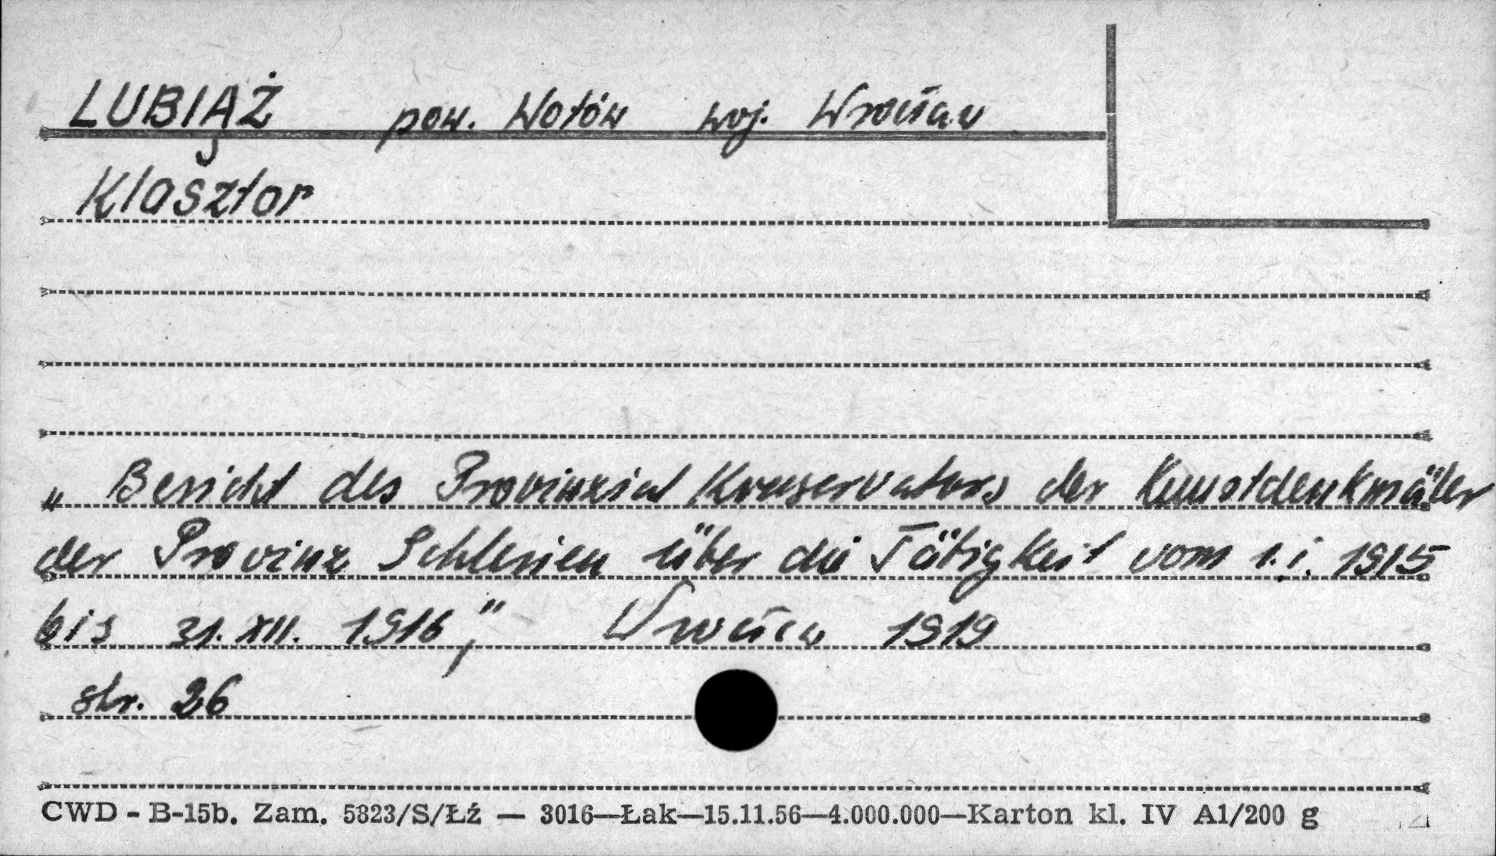 LUBIĄŻ pow. Wołów woj. Wrocław
Klasztor
„Bericht des Provinzial Konservators der Kunstdenkmäler
der Provinz Schlesien über die Tätigkeit vom 1.I. 1915
bis 31.XII. 1916," Wrocław 1919
str. 26
CWD - B-15b. Zam. 5823/S/Łź — 3016—Łak—15.11.56—4.000.000—Karton kl. IV A1/200 g